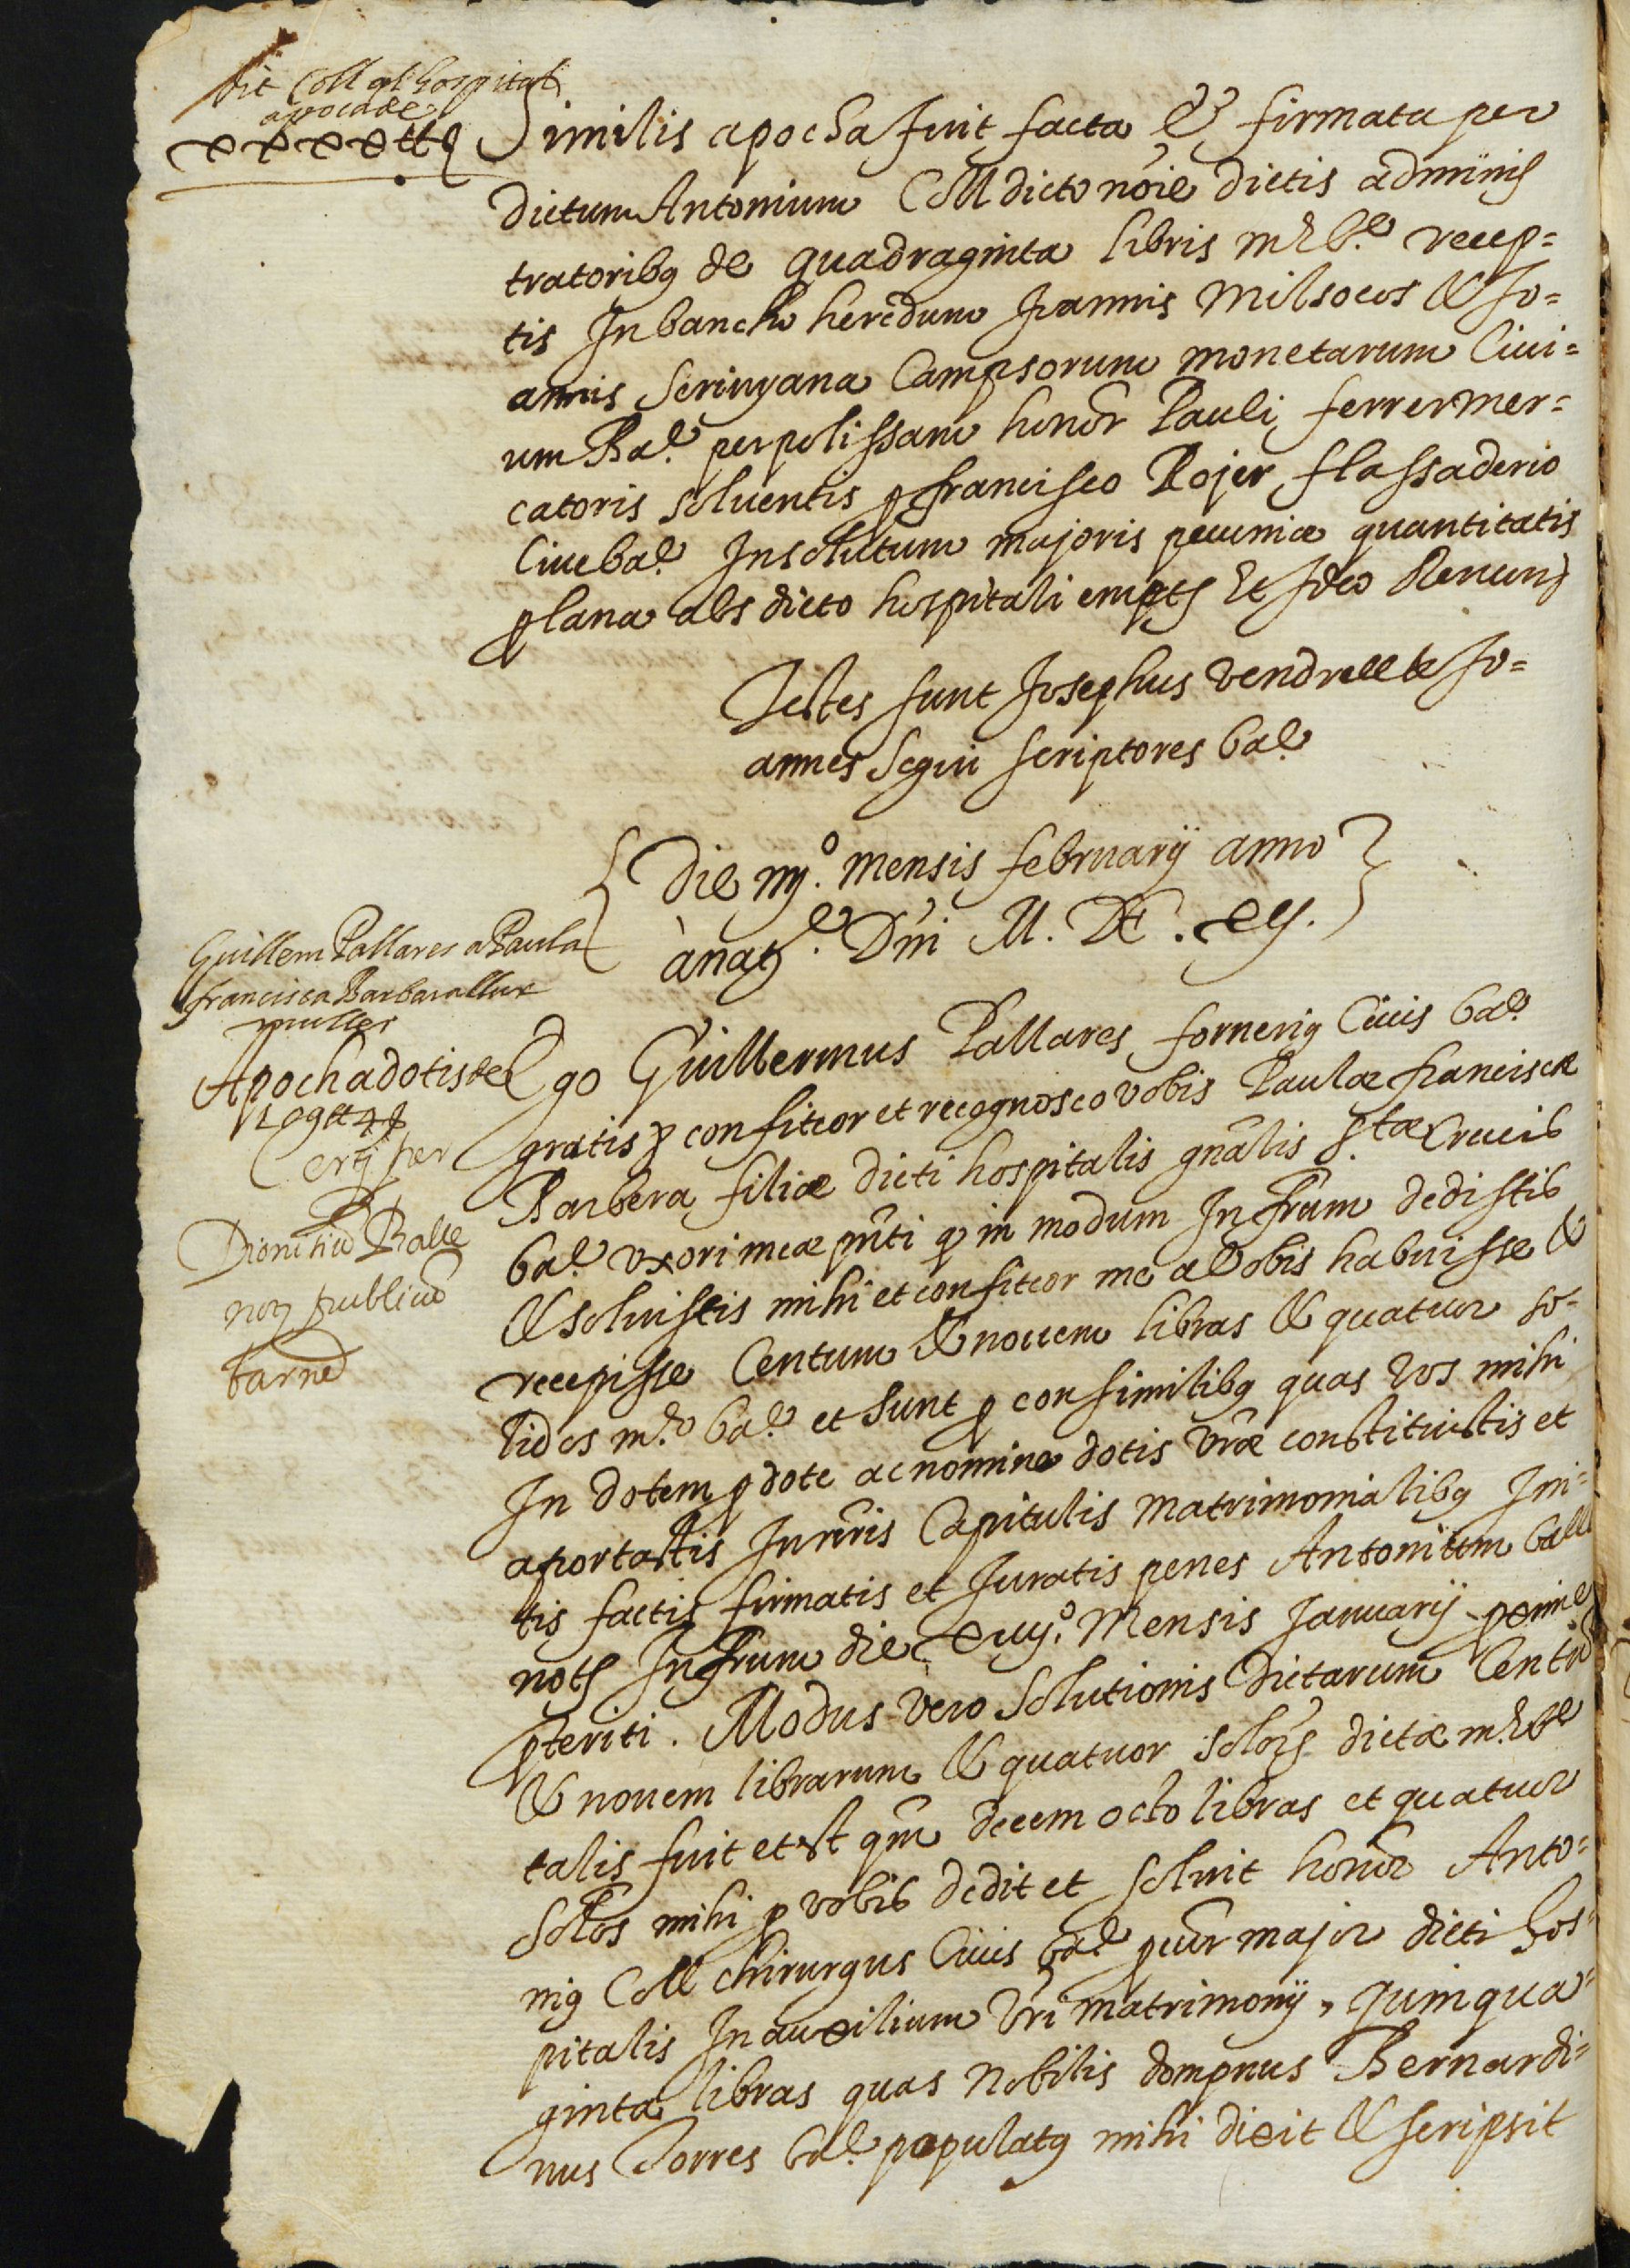 dit Coll al hospital
apocade
xxxxtt§
Similis apocha fuit facta & firmata per
dictum Antonium Coll dicto nõie dictis adminis
tratoribꝯ de quadraginta libris recep=
tis In bancho heredum Joannis Milsocos & Jo=
annis Serinyana Campsorum monetarum Ciui=
um Bar. per polissam honor Pauli ferrer mer=
catoris soluentis ꝑ francisco Rojer flassaderio
Ciue bar. Insolutum majoris pecuniæ quantitatis
ꝑ lana abs dicto hospitali empt Et Ideo Renun
Testes sunt Josephus vendrell & Jo=
annes Segui scriptores bar.
Die iiij.º mensis februarij anno
à nat. Dñi M. DC. xv.
Guillem Pallares a Paula
francisca Barbara llur
muller
Apocha dotis de
Certj per
Dionisiũ Balle
not publicũ
barne
Ego Guillermus Pallares forneriꝯ Ciuis bar.
gratis & confiteor et recognosco vobis Paulæ franciscæ
Barbera filiæ dicti hospitalis gñalis s.tæ Crucis
bar. vxori meæ pñti ꝙ in modum Infrum dedistis
& soluistis mihi et confiteor me a vobis habuisse &
recepisse Centum & nouem libras & quatuor so=
lidos m.ᵒ bar. et sunt ꝑ consimilibꝯ quas vos mihi
In dotem ꝑ dote ac nomine dotis vræ constituistis et
aportastis In nris Capitulis matrimonialibꝯ Ini=
tis factis firmatis et Juratis penes Antonium batll
not Infrum die Mensis Januarij ꝓxime
ꝑteriti. Modus vero solutionis dictarum Centũ
& nouem librarum & quatuor solor dictæ
talis fuit et est qm decem octo libras et quatuor
solos mihi ꝑ vobis dedit et soluit honor Anto=
niꝯ Coll chirurgus Ciuis bar. prior major dicti hos=
pitalis In auxilium vri matrimonij, quinqua=
ginta libras quas Nobilis dompnus Bernardi=
nus Torres bar. populatꝯ mihi dixit & scripsit